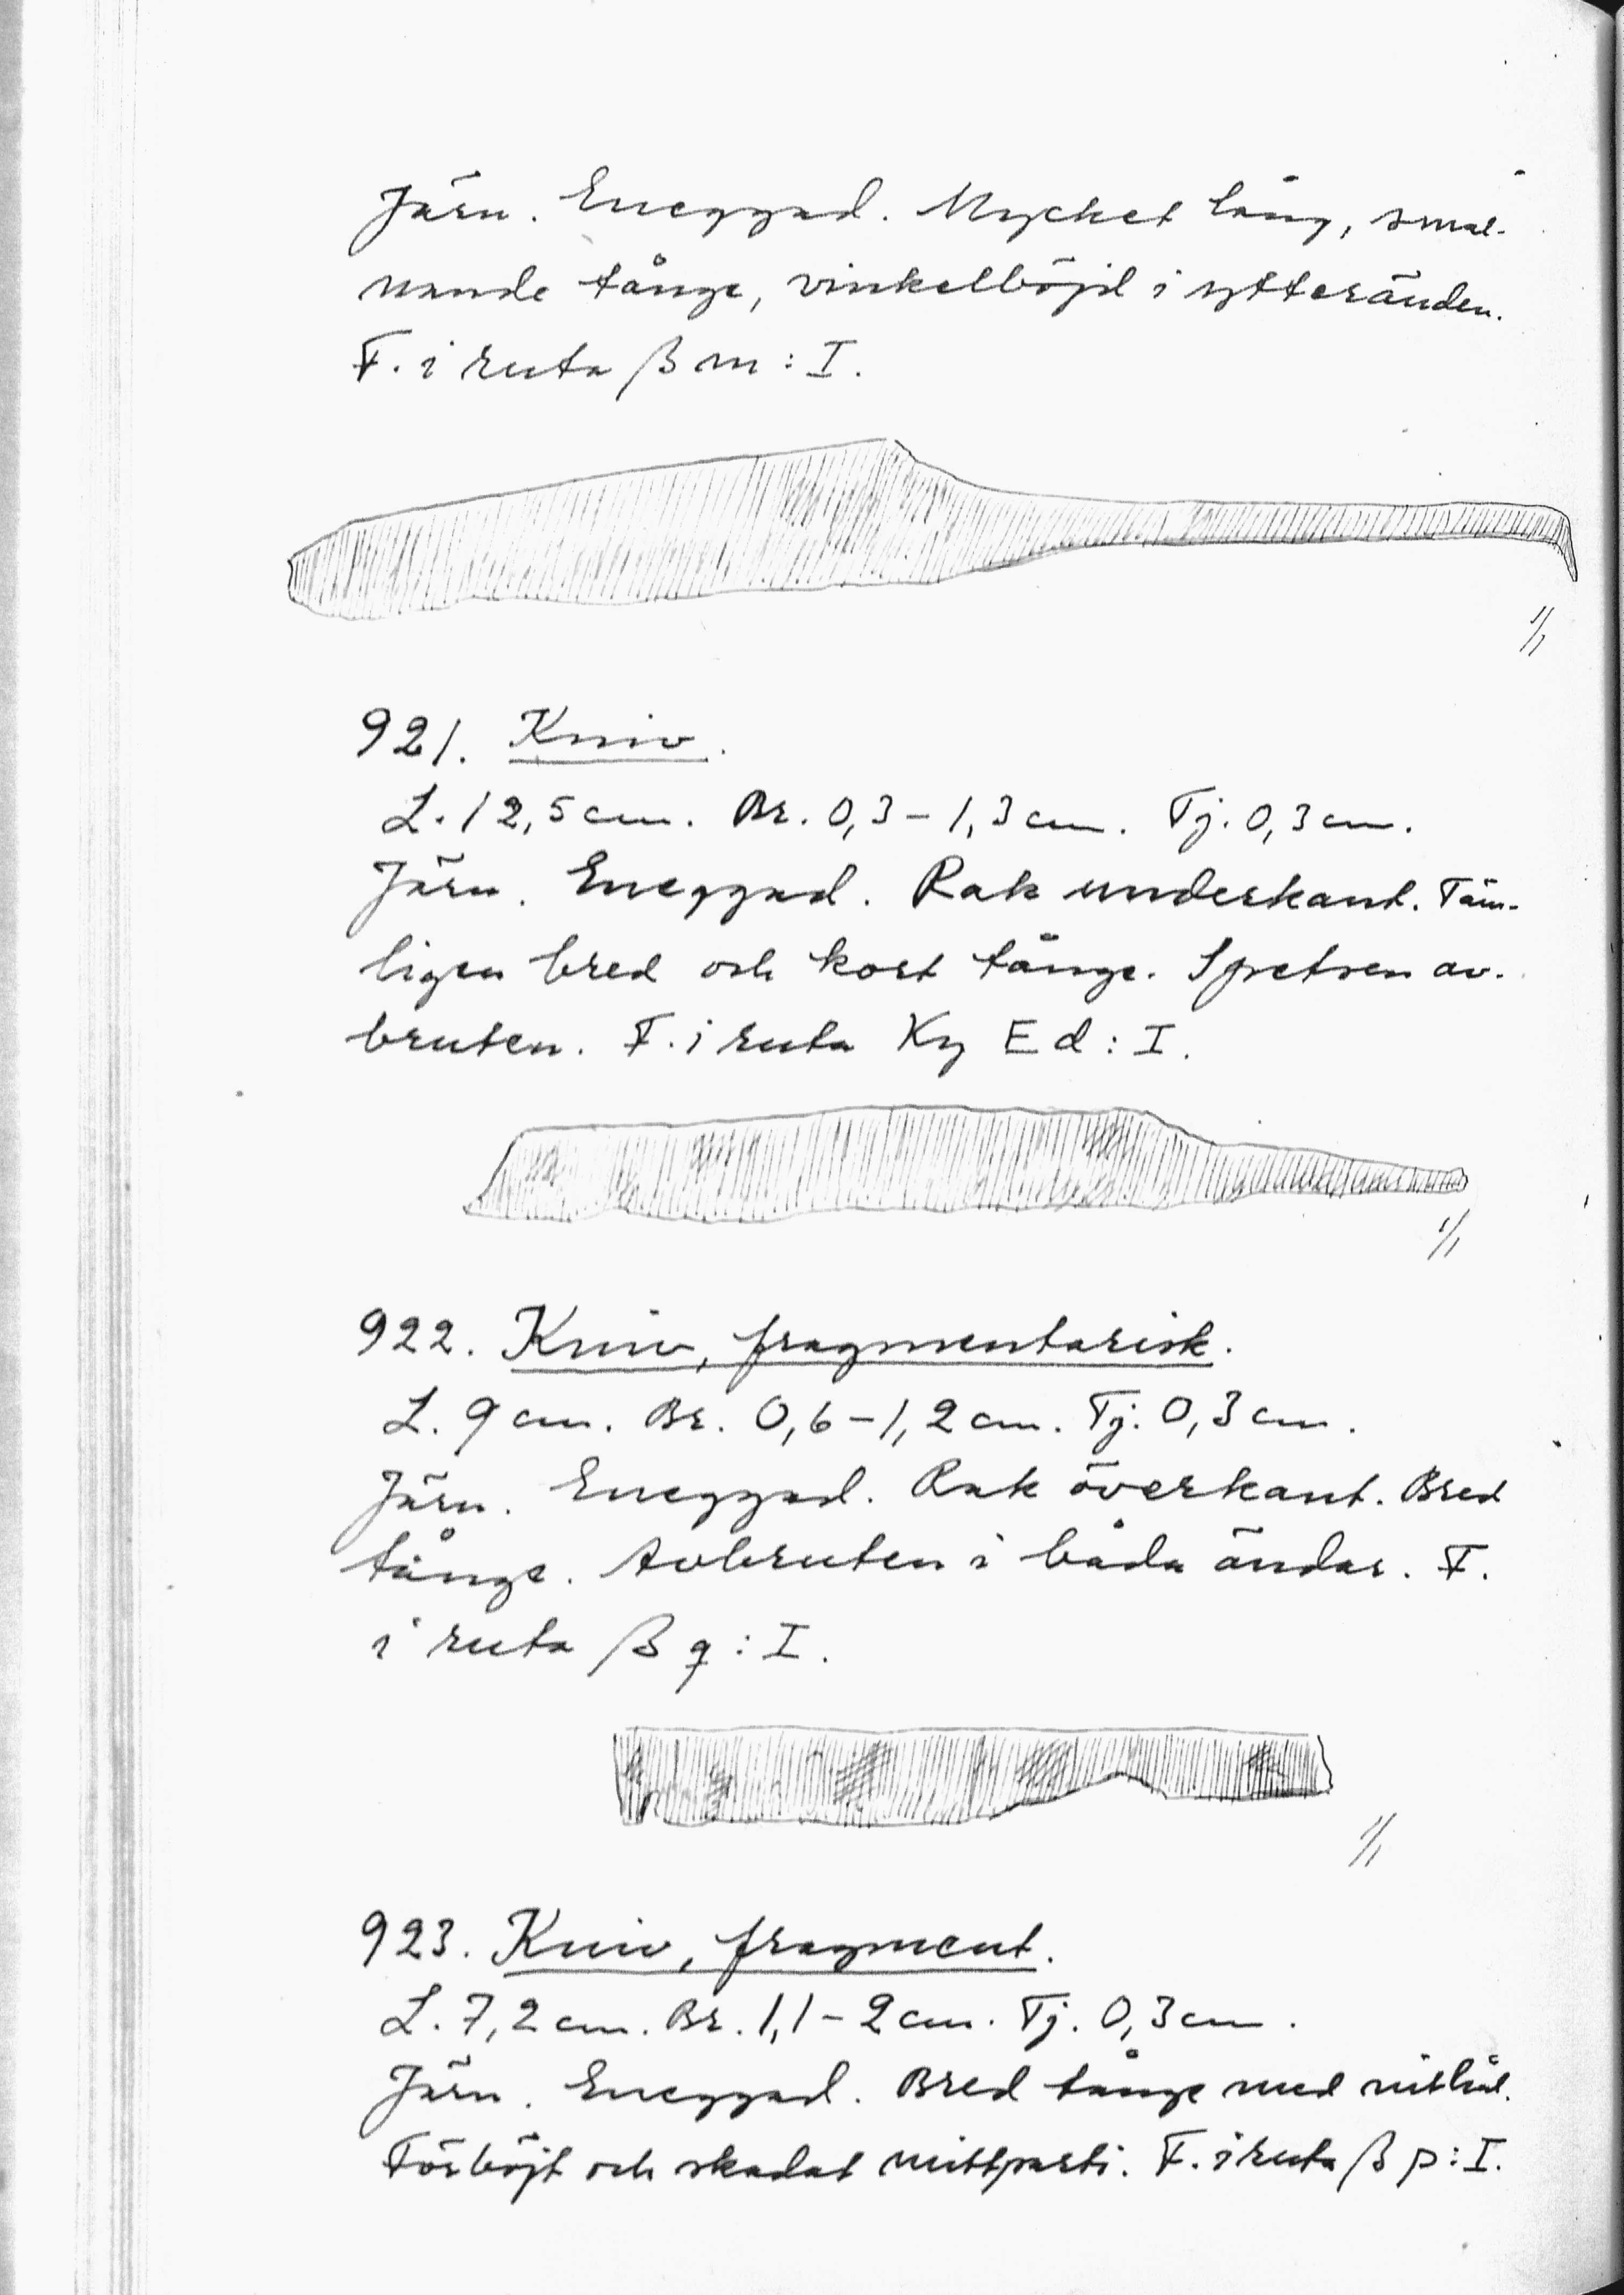 Järn. Eneggad. Mycket lång, smal-
nande tånge, vinkelböjd i ytteränden.
F. i ruta β m : I.
1/1
921. Kniv.
L. 12,5 cm. Br. 0,3 – 1,3 cm. Tj. 0,3 cm.
Järn. Eneggad. Rak underkant. Täm-
ligen bred och kort tånge. Spetsen av-
bruten. F. i ruta Ky E d : I.
1/1
922. Kniv, fragmentarisk.
L. 9 cm. Br. 0,6 – 1,2 cm. Tj. 0,3 cm.
Järn. Eneggad. Rak överkant. Bred
tånge. Avbruten i båda ändar. F.
i ruta β q : I.
1/1
923. Kniv, fragment.
L. 7,2 cm. Br. 1,1 – 2 cm. Tj. 0,3 cm.
Järn. Eneggad. Bred tånge med nithål.
Förböjt och skadat mittparti. F. i ruta β p : I.